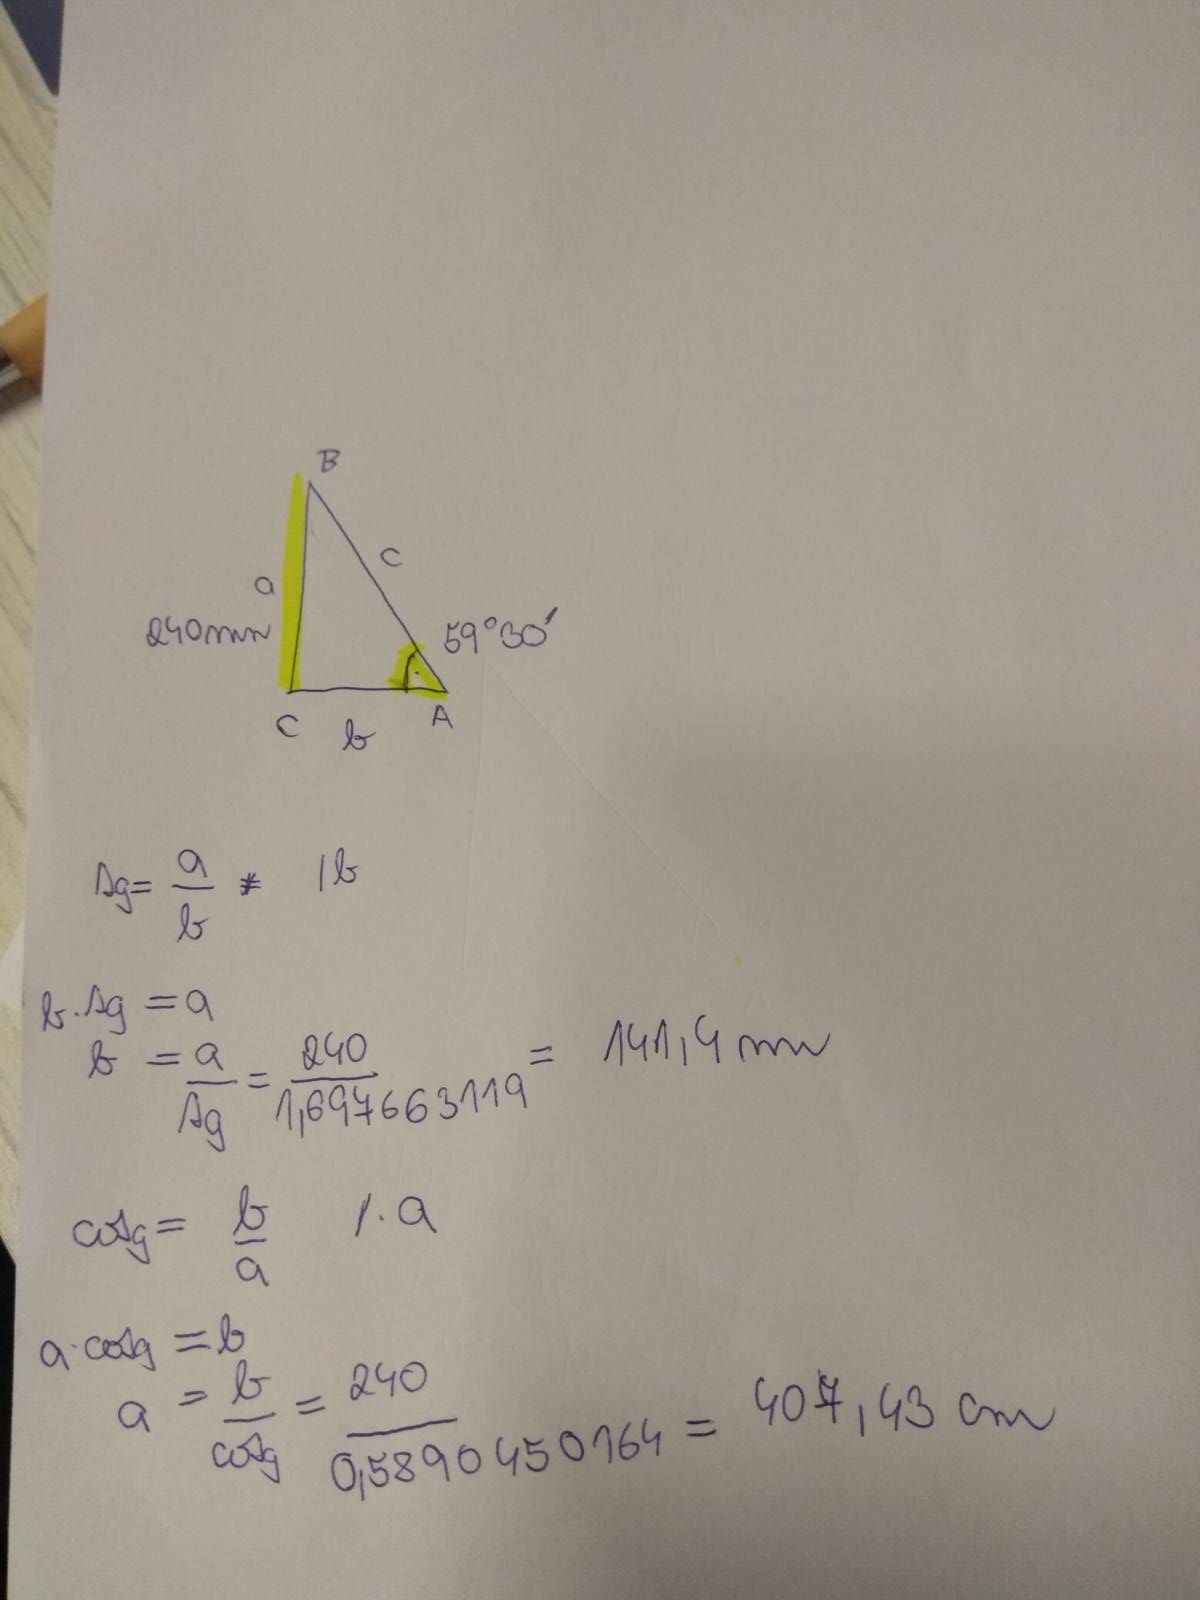 B
a
c
240mm
59°30'
C
b
A
tg= a/b * /b
b.tg = a
b = a/tg = 240/1,697663119 = 141,4 mm
cotg= b/a /. a
a. cotg = b
a = b/cotg = 240/0,5890450164 = 407,43 cm